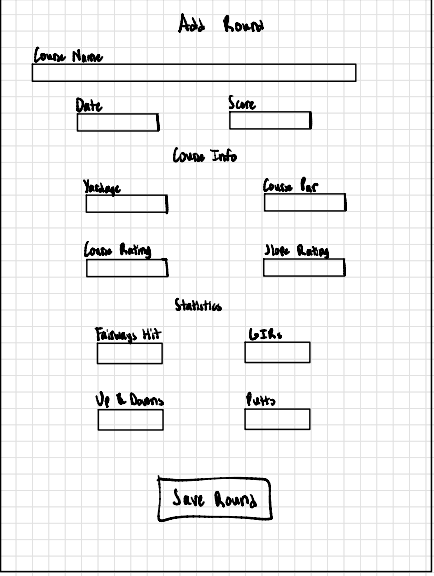 Add Round
Course Name
Date Score
Course Info
Yardage Course Par
Course Rating Slope Rating
Statistics
Fairways Hit GIRs
Up & Downs Putts
Save Round